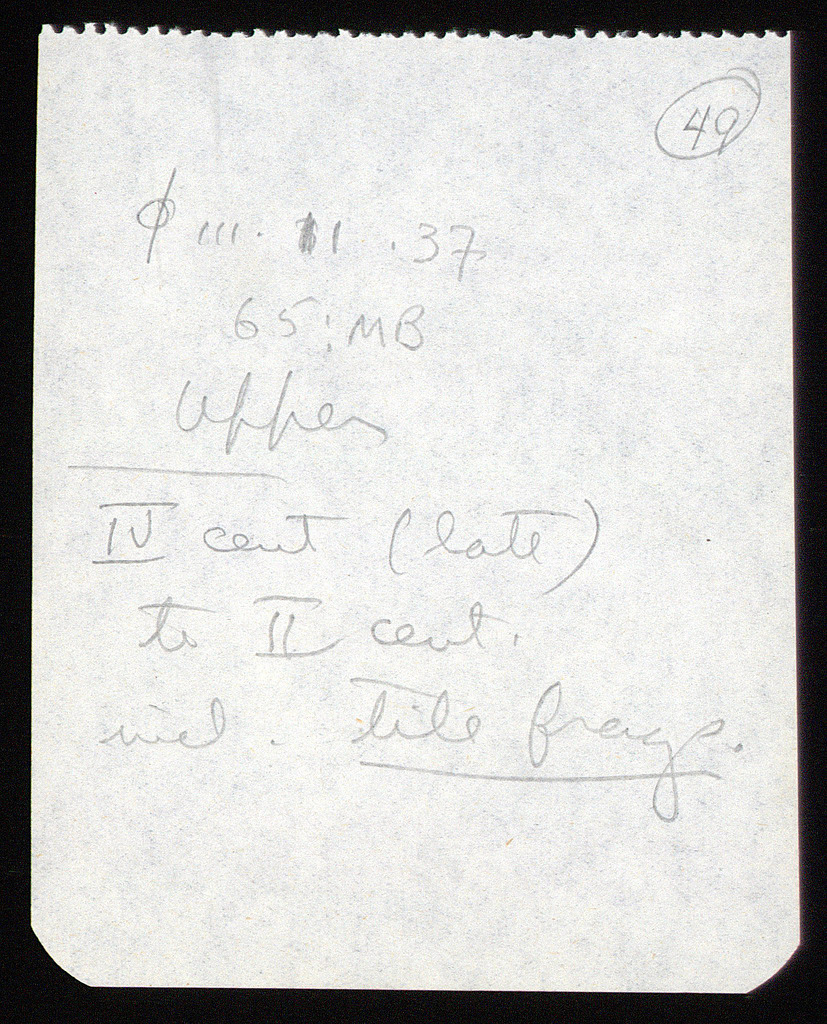 49
φ III. 11 .37
65:MB
Upper
IV cent (late)
to II cent.
incl. tile frags.